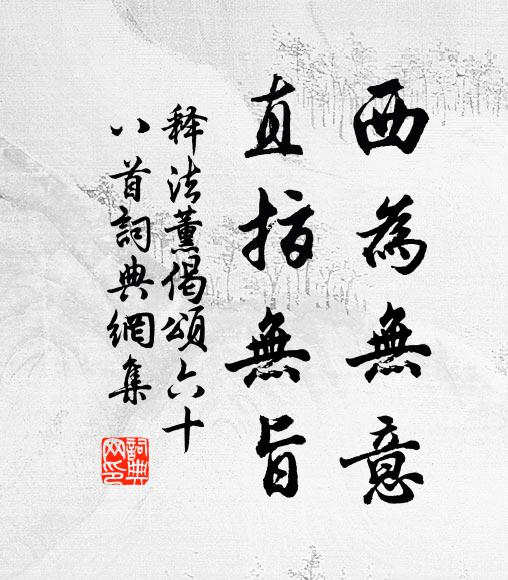 西為無意
直指無旨
释法薰偈頌六十
八首詞典網集
詞典网印